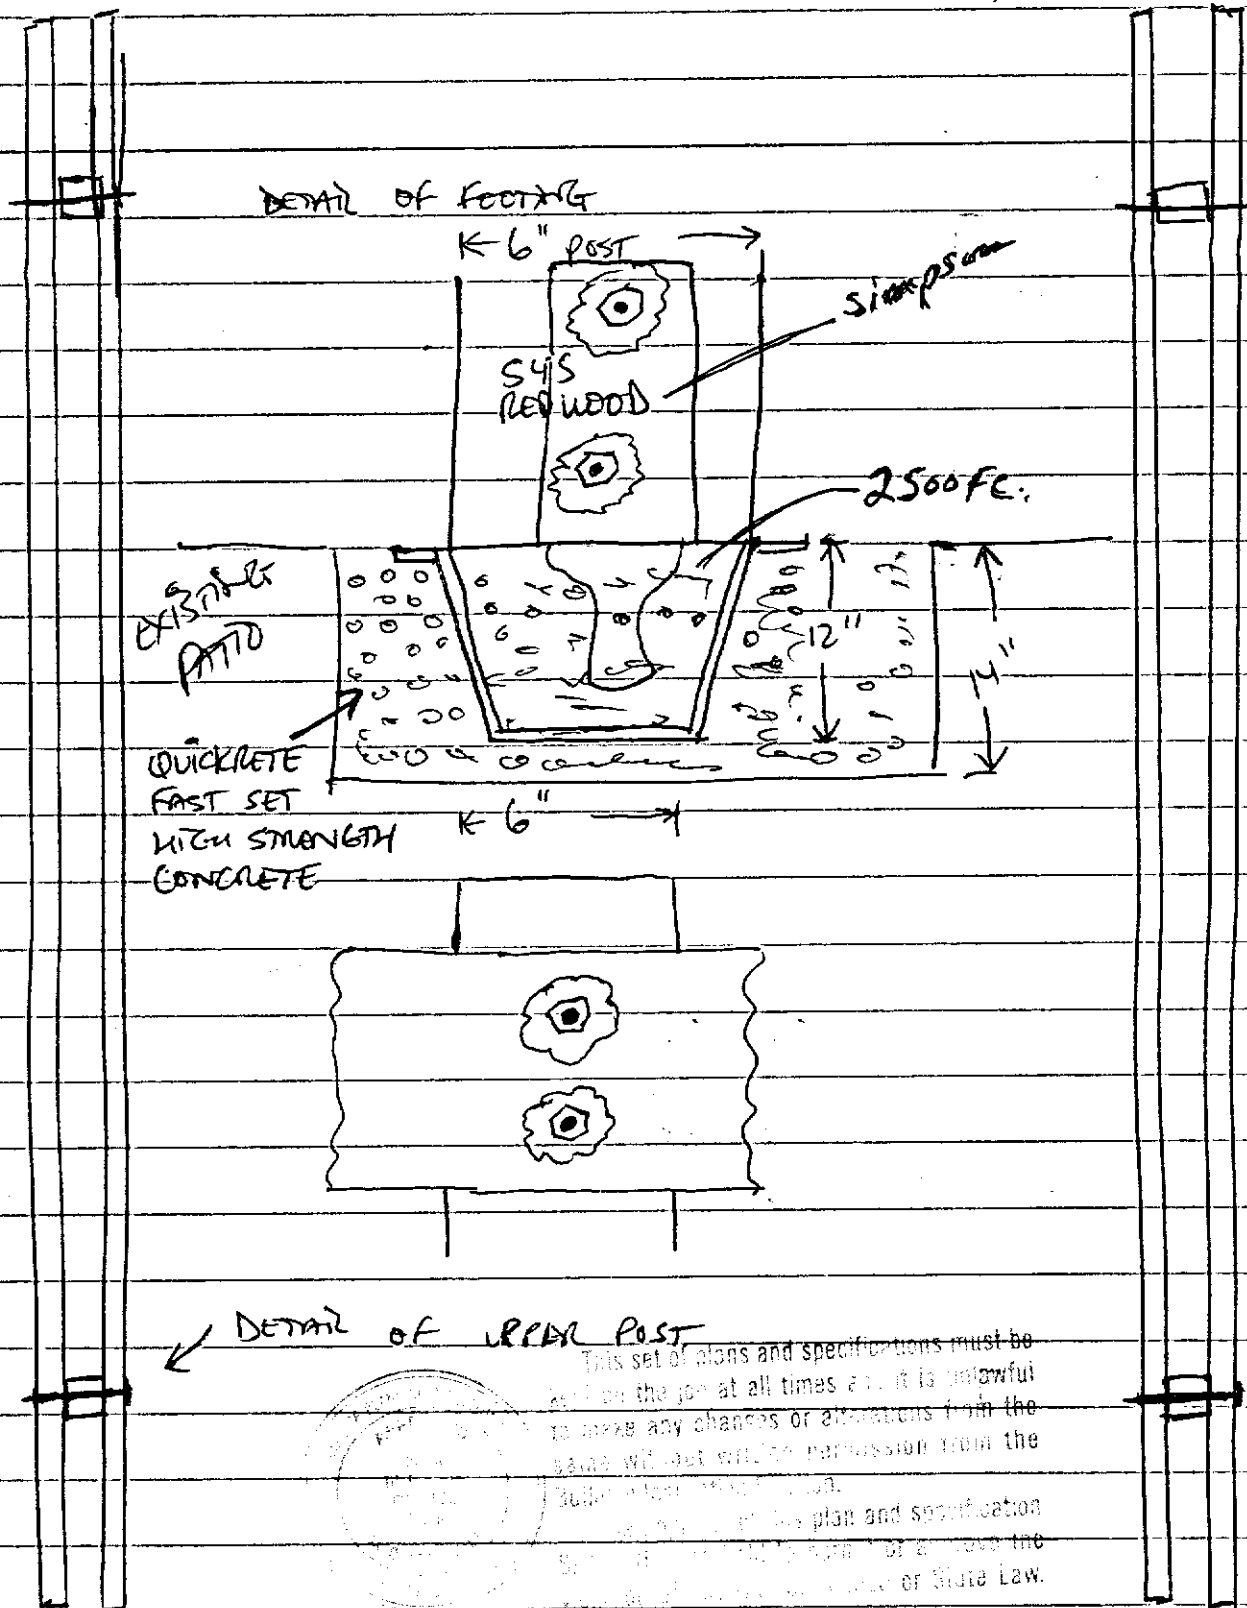 DETAIL OF FOOTING
6" POST
simpson
S4S
REDWOOD
2500 FC.
EXISTING
PATIO
12"
14"
QUICKRETE
FAST SET
HIGH STRENGTH
CONCRETE
6"
DETAIL OF UPPER POST
This set of plans and specifications must be
on the job at all times it is unlawful
to make any changes or alterations from the
same without permission from the
plan and specification
the
or State Law.